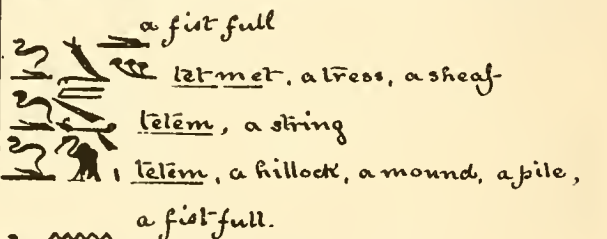 a fist full
tetmet, a tress, a sheaf
tetem, a string
tetem, a hillock, a mound, a pile,
a fist full.